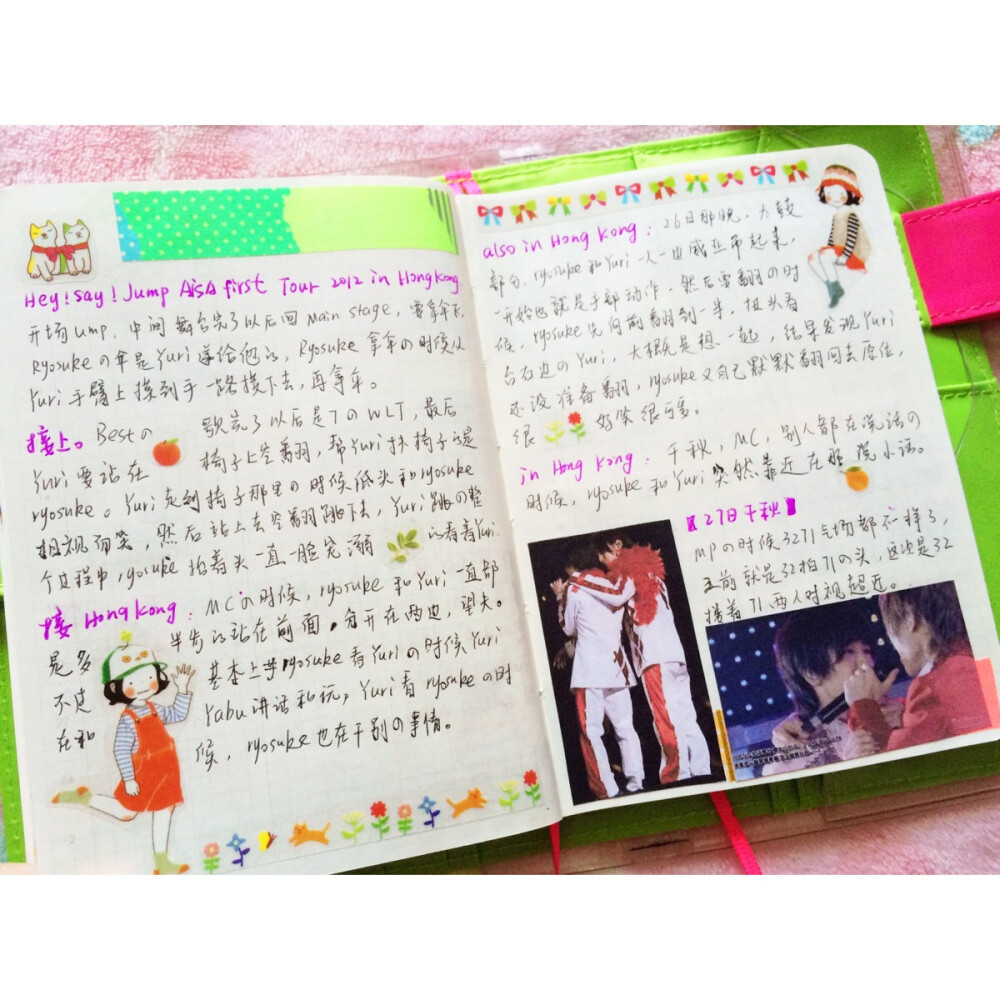 Hey! Say! Jump AiSA first Tour 2012 in Hongkong
开场ump, 中间舞台完了以后回 main stage, 要拿伞了,
Ryosuke の伞是Yuri递给他的, Ryosuke 拿伞の时候从
Yuri 手臂上摸到手一路摸下去, 再拿伞。
接上。Bestの 歌完了以后是7のWLT, 最后
Yuri 要站在 椅子上空翻, 帮Yuri扶椅子的是
ryosuke。Yuri走到椅子那里の时候低头和ryosuke
相视而笑, 然后站上去空翻跳下去, Yuri跳の整
个过程中, ryosuke 抬着头一直一脸宠溺 的看着Yuri.
接 Hong kong: MCの时候, ryosuke 和Yuri一直都
是多 半步的站在前面, 分开在两边, 望夫。
不过 基本上ryosuke看Yuriの时候Yuri
在和 Yabu讲话和玩, Yuri看ryosukeの时
候, ryosuke也在干别の事情。
also in Hong Kong: 26日那晚, 太鼓
部分, ryosuke和Yuri一人一边威亚吊起来,
一开始也就是手部动作, 然后要翻の时
候, ryosuke先向前翻到一半, 扭头看
台右边のYuri, 大概是想一起, 结果发现Yuri
还没准备翻, ryosuke又自己默默翻回去原位,
很 好笑很可爱。
in Hong Kong: 千秋, MC, 别人都在说话の
时候, ryosuke 和Yuri突然靠近在那说小话。
【27日千秋】
MPの时候3271气场都不一样了,
之前就是32拍71の头, 这边是32
搂着71, 两人对视超近。